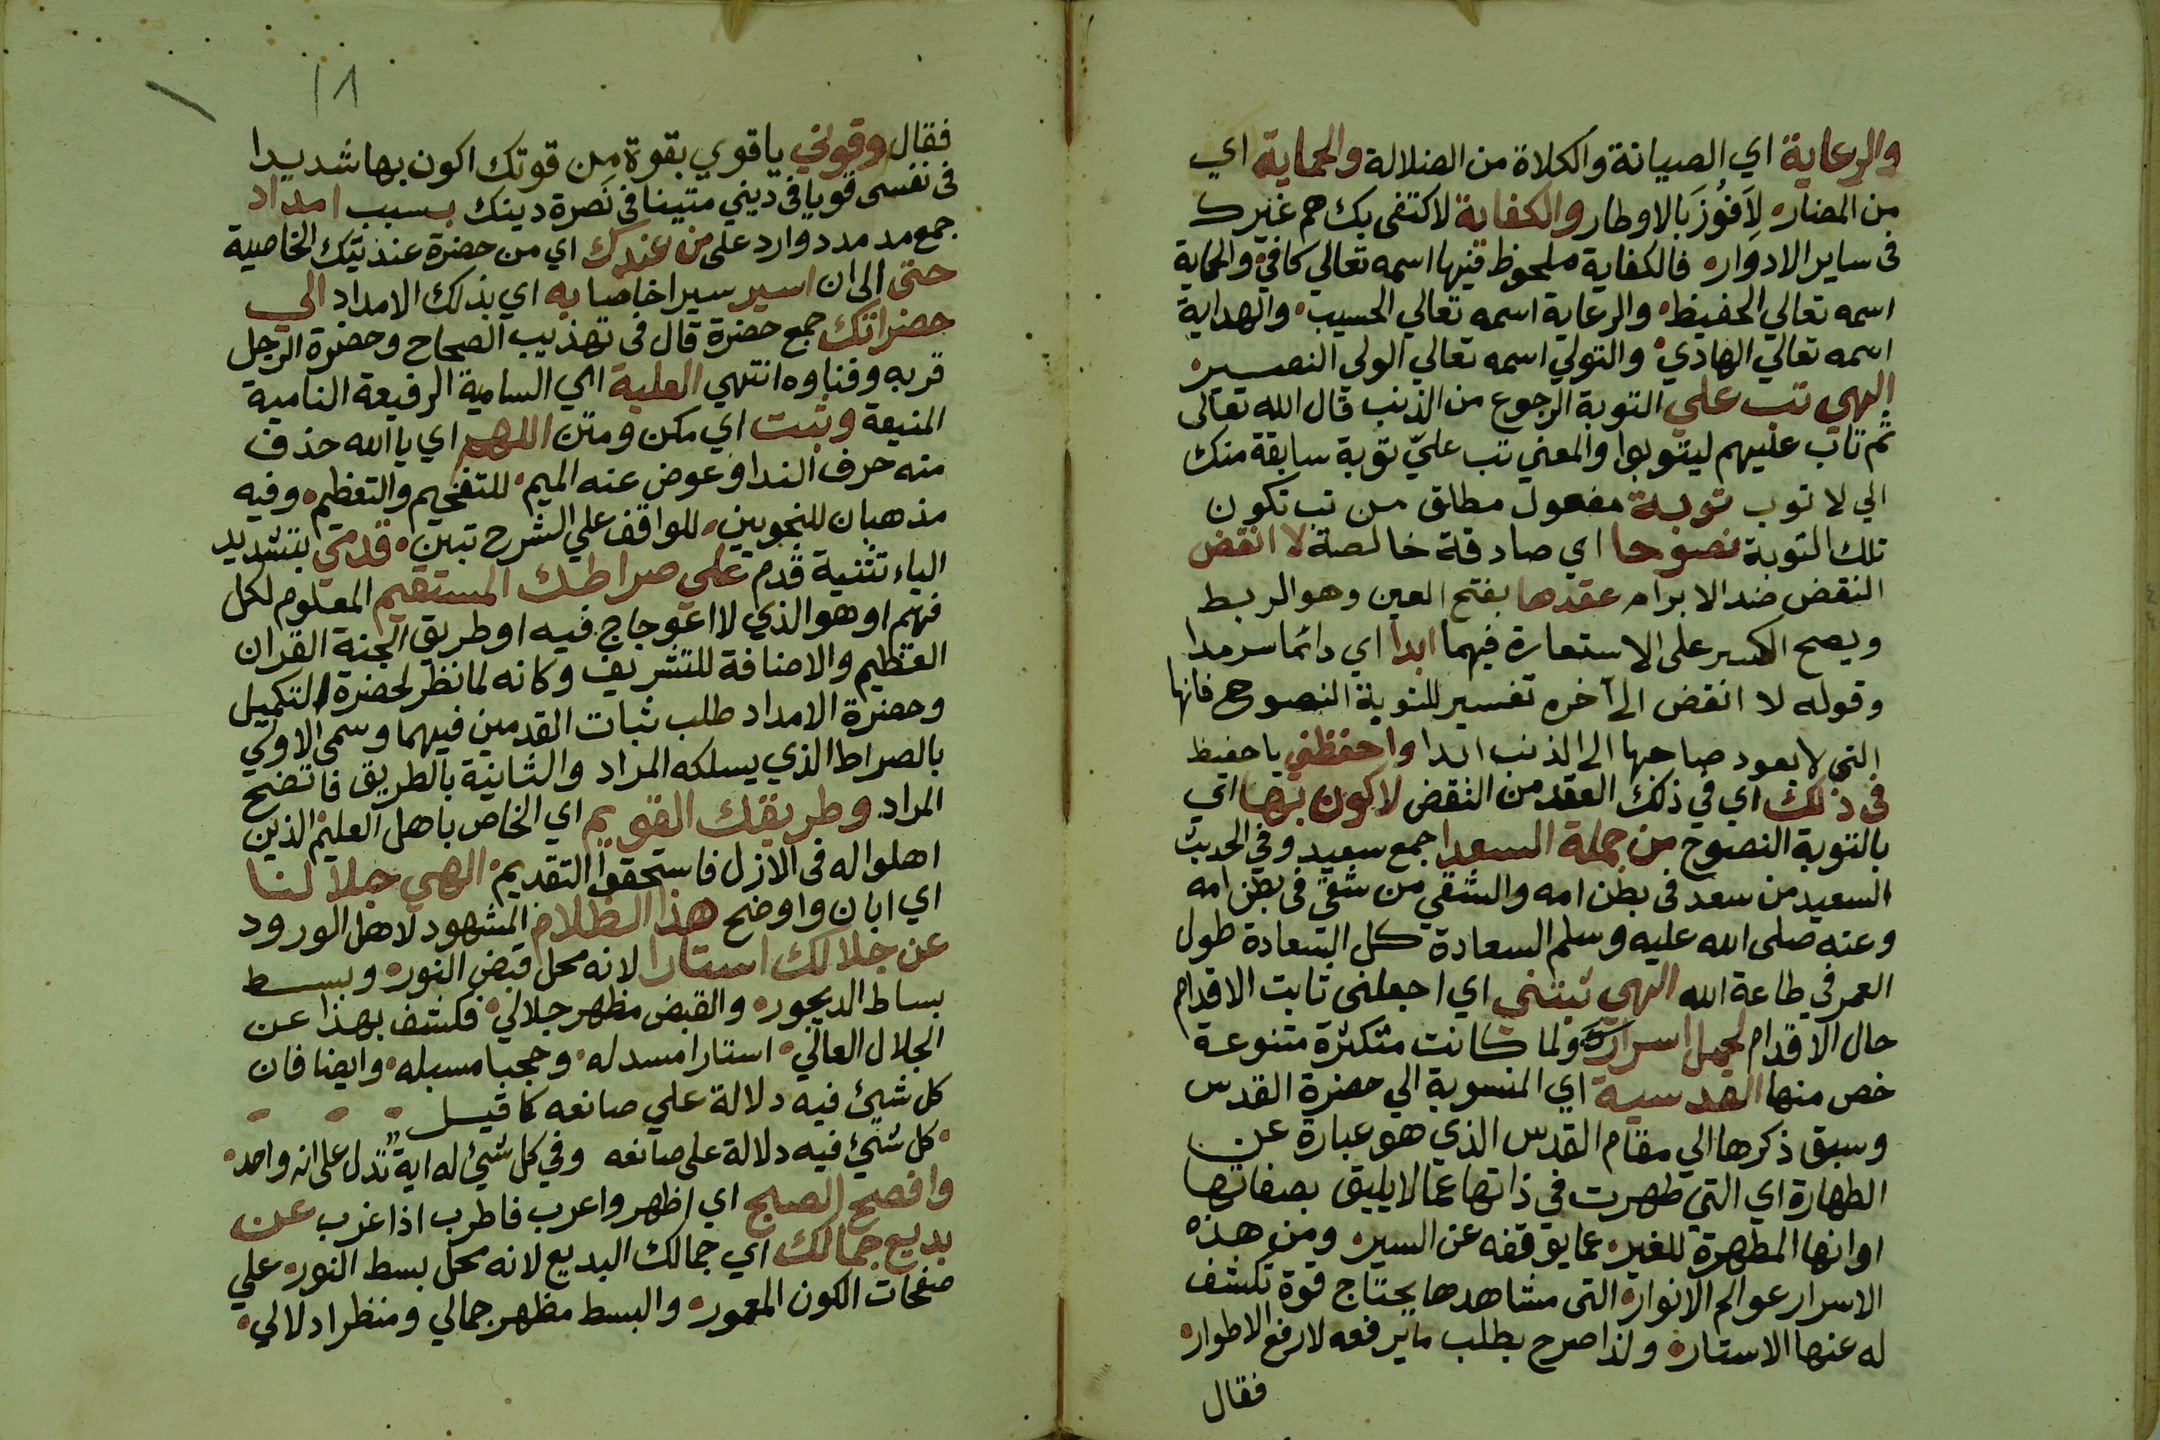 والرعاية اي الصيانة والكلاة من الضلالة والحماية اي
من المضار لِاَفُوزَ بالاوطار والكفاية لاكتفى بك هم غيرك
فى ساير الادوار فالكفاية ملحوظ فيها اسمه تعالي كافي والحماية
اسمه تعالي الحفيظ والرعاية اسمه تعالي الحسيب والهداية
اسمه تعالي الهادي والتولي اسمه تعالي الولي النصير
الهي تب علي التوبة الرجوع من الذنب قال الله تعالى
ثم تاب عليهم ليتوبوا والمعني تب عليّ توبة سابقة منك
الي لا توب توبة مفعول مطلق من تب تكون
تلك التوبة نصوحا اي صادقة خالصة لا انقض
النقض ضد الابرام عقدها بفتح العين وهو الربط
ويصح الكسر على الاستعارة فيهما ابدا اي دائما سرمدا
وقوله لا انقض الى آخره تفسير للتوبة النصوح فانها
التي لا يعود صاحبها الى الذنب ابدا واحفظني يا حفيظ
فى ذلك اي في ذلك العقد من النقض لاكون بها اي
بالتوبة النصوح من جملة السعدا جمع سعيد وفي الحديث
السعيد من سعد فى بطن امه والشقي من شقي فى بطن امه
وعنه صلى الله عليه وسلم السعادة كل السعادة طول
العمر في طاعة الله الهي ثبتني اي اجعلنى ثابت الاقدام
حال الاقدام لحمل اسرارك ولما كانت متكثرة متنوعة
خص منها القدسية اي المنسوبة الي حضرة القدس
وسبق ذكرها الي مقام القدس الذي هو عبارة عن
الطهارة اي التي طهرت في ذاتها عما لا يليق بصفاتها
اوانها المطهرة للغير عما يوقفه عن السير ومن هذه
الاسرار عوالم الانوار التى مشاهدها يحتاج قوة تكشف
له عنها الاستار ولذا صرح بطلب ما يرفعه لارفع الاطوار
فقال
١٨
فقال وقوني يا قوي بقوة من قوتك اكون بها شديدا
فى نفسى قويا فى ديني متينا في نصرة دينك بسبب امداد
جمع مدد مدد وارد على من عندك اي من حضرة عنديتك الخاصية
حتى الى ان اسير سيرا خاصا به اي بذلك الامداد الي
حضراتك جمع حضرة قال فى تهذيب الصحاح وحضرة الرجل
قربه وفناوه انتهي العلية اي السامية الرفيعة النامية
المنيعة وثبت اي مكن ومتن اللهم اي يا الله حذف
منه حرف الندا وعوض عنه الميم للتفخيم والتعظيم وفيه
مذهبان للنحويين للواقف علي الشرح تبين قدمي بتشديد
الياء تثنية قدم علي صراطك المستقيم المعلوم لكل
فهيم او هو الذي لا اعوجاج فيه او طريق الجنة القران
العظيم والاضافة للتشريف وكانه لما نظر لحضرة التكميل
وحضرة الامداد طلب ثبات القدمين فيهما وسمى الاولي
بالصراط الذي يسلكه المراد والثانية بالطريق فاتضح
المراد وطريقك القويم اي الخاص باهل العليم الذين
اهلوا له فى الازل فاستحقوا التقديم الهي جلا لنا
اي ابان واوضح هذا الظلام المشهود لاهل الورود
عن جلالك استارا لانه محل قبض النور وبسط
بساط الديجور والقبض مظهر جلالي فكشف بهذا عن
الجلال العالي استارا مسدله وحجبا مسبله وايضا فان
كل شيئ فيه دلالة علي صانعه كما قيل
كل شيئ فيه دلالة على صانعه وفي كل شيئ له اية تدل على انه واحد
وافصح الصبح اي اظهر واعرب فاطرب اذا غرب عن
بديع جمالك اي جمالك البديع لانه محل بسط النور علي
صفحات الكون المعمور والبسط مظهر جمالي ومنظر ادلالي